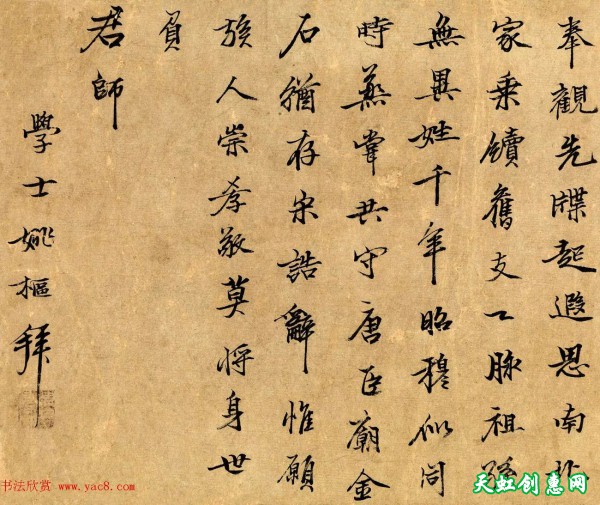 奉觀先牒起遐思南北
家乘續舊支一脉祖孫
無異姓千年昭穆似同
時蒸嘗共守唐臣廟金
石猶存宋誥辭惟願
族人崇孝敬莫將身世
負
君師
學士姚樞拜
书法欣赏 www.yac8.com
天虹创惠网